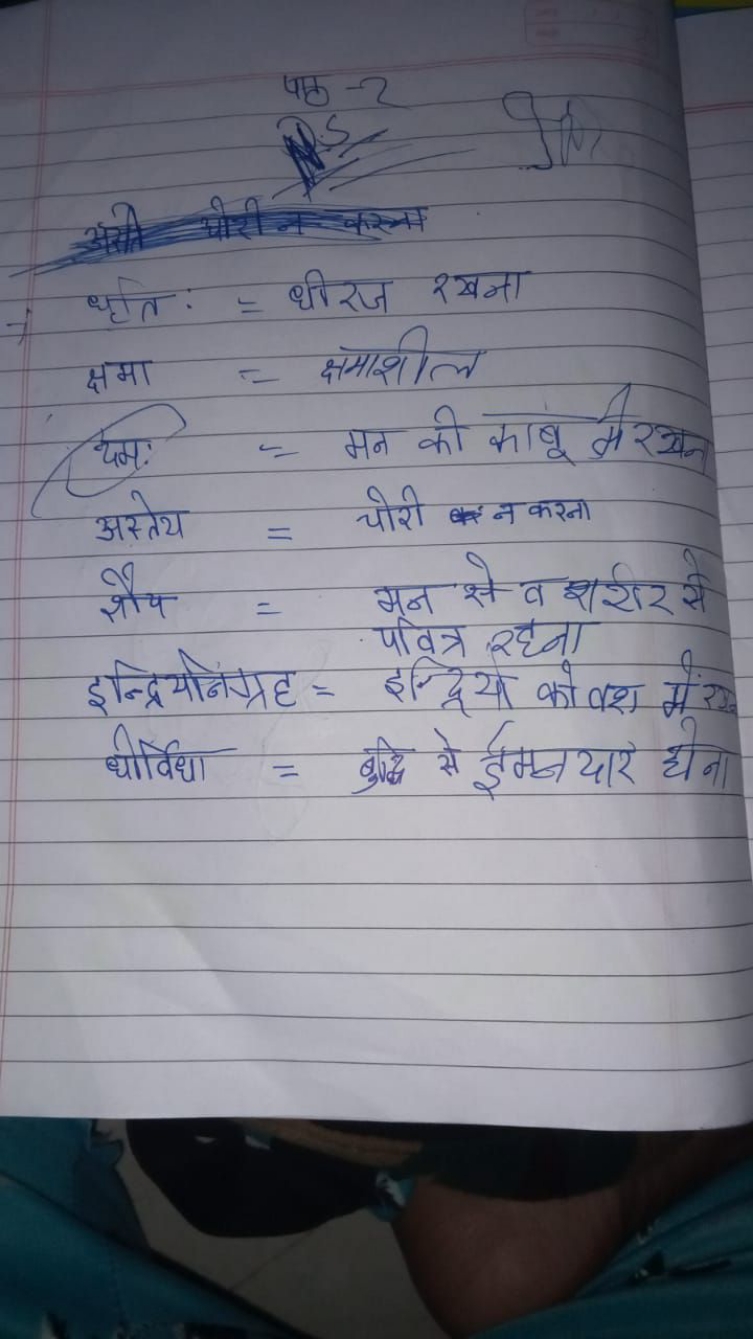 पाठ -2
धृति: = धीरज रखना
क्षमा = क्षमाशील
दम: = मन को काबू में रखना
अस्तेय = चोरी न करना
शौच = मन से व शरीर से
पवित्र रहना
इन्द्रियनिग्रह = इन्द्रियों को वश में
धीर्विधा = बुद्धि से ईमानदार होना